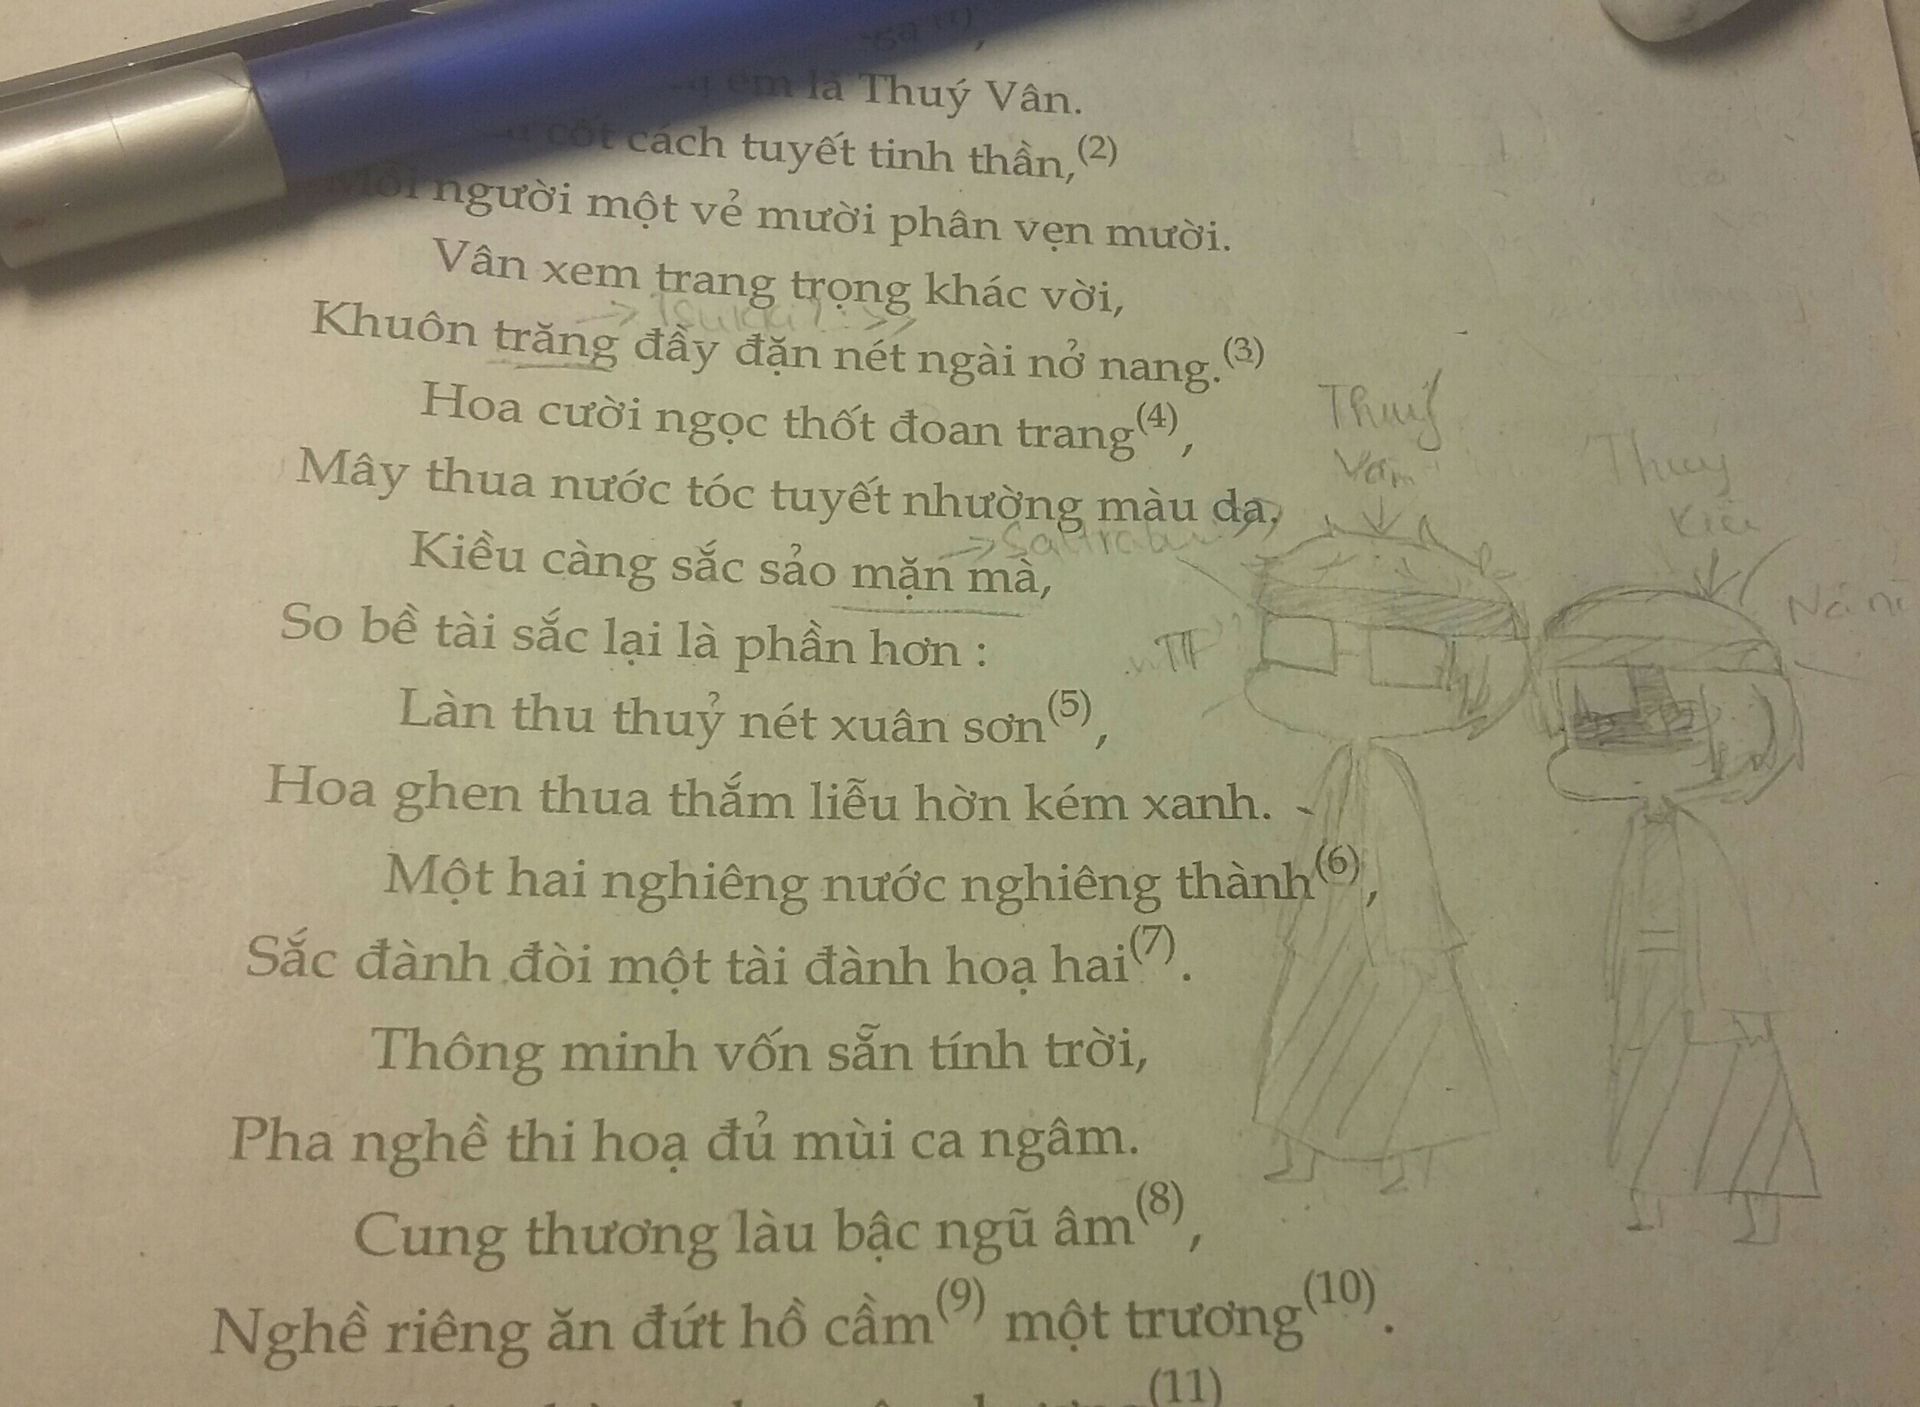 em là Thuý Vân.
cốt cách tuyết tinh thần,(2)
Mỗi người một vẻ mười phân vẹn mười.
Vân xem trang trọng khác vời,
Khuôn trăng đầy đặn nét ngài nở nang.(3)
Hoa cười ngọc thốt đoan trang(4),
Mây thua nước tóc tuyết nhường màu da.
Kiều càng sắc sảo mặn mà,
So bề tài sắc lại là phần hơn :
Làn thu thuỷ nét xuân sơn(5),
Hoa ghen thua thắm liễu hờn kém xanh.
Một hai nghiêng nước nghiêng thành(6),
Sắc đành đòi một tài đành hoạ hai(7).
Thông minh vốn sẵn tính trời,
Pha nghề thi hoạ đủ mùi ca ngâm.
Cung thương làu bậc ngũ âm(8),
Nghề riêng ăn đứt hồ cầm(9) một trương(10).
(11)
Thuý
Vân
Thuý
Kiều